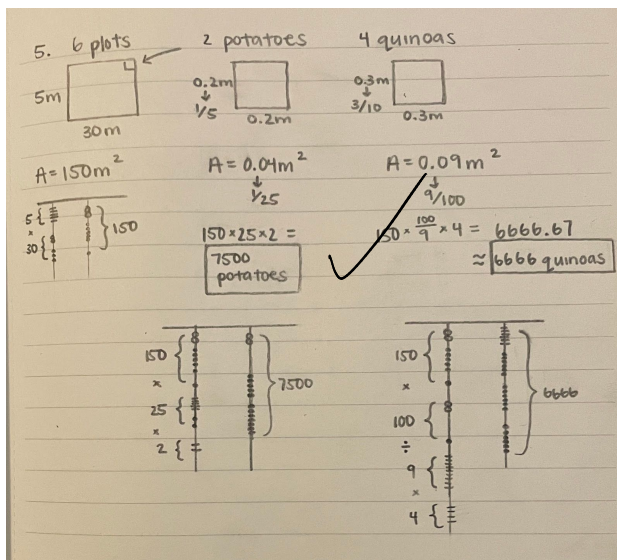 5. 6 plots
5m
30m
A = 150m²
5 { } 150
×
30 {
2 potatoes
0.2m
↓
1/5
0.2m
A = 0.04m²
↓
1/25
150×25×2 =
7500
potatoes
4 quinoas
0.3m
↓
3/10
0.3m
A = 0.09m²
↓
9/100
150 × 100/9 × 4 = 6666.67
≈ 6666 quinoas
150 { } 7500
×
25 {
×
2 {
150 { } 6666
×
100 {
÷
9 {
×
4 {